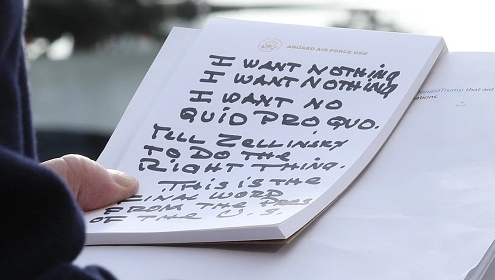 ABOARD AIR FORCE ONE
I WANT NOTHING
I WANT NOTHING
I WANT NO
QUID PRO QUO.
TELL ZELLINSKY
TO DO THE
RIGHT THING.
THIS IS THE
FINAL WORD
FROM THE PRES
OF THE U.S.
naldTrump that aid
ations.